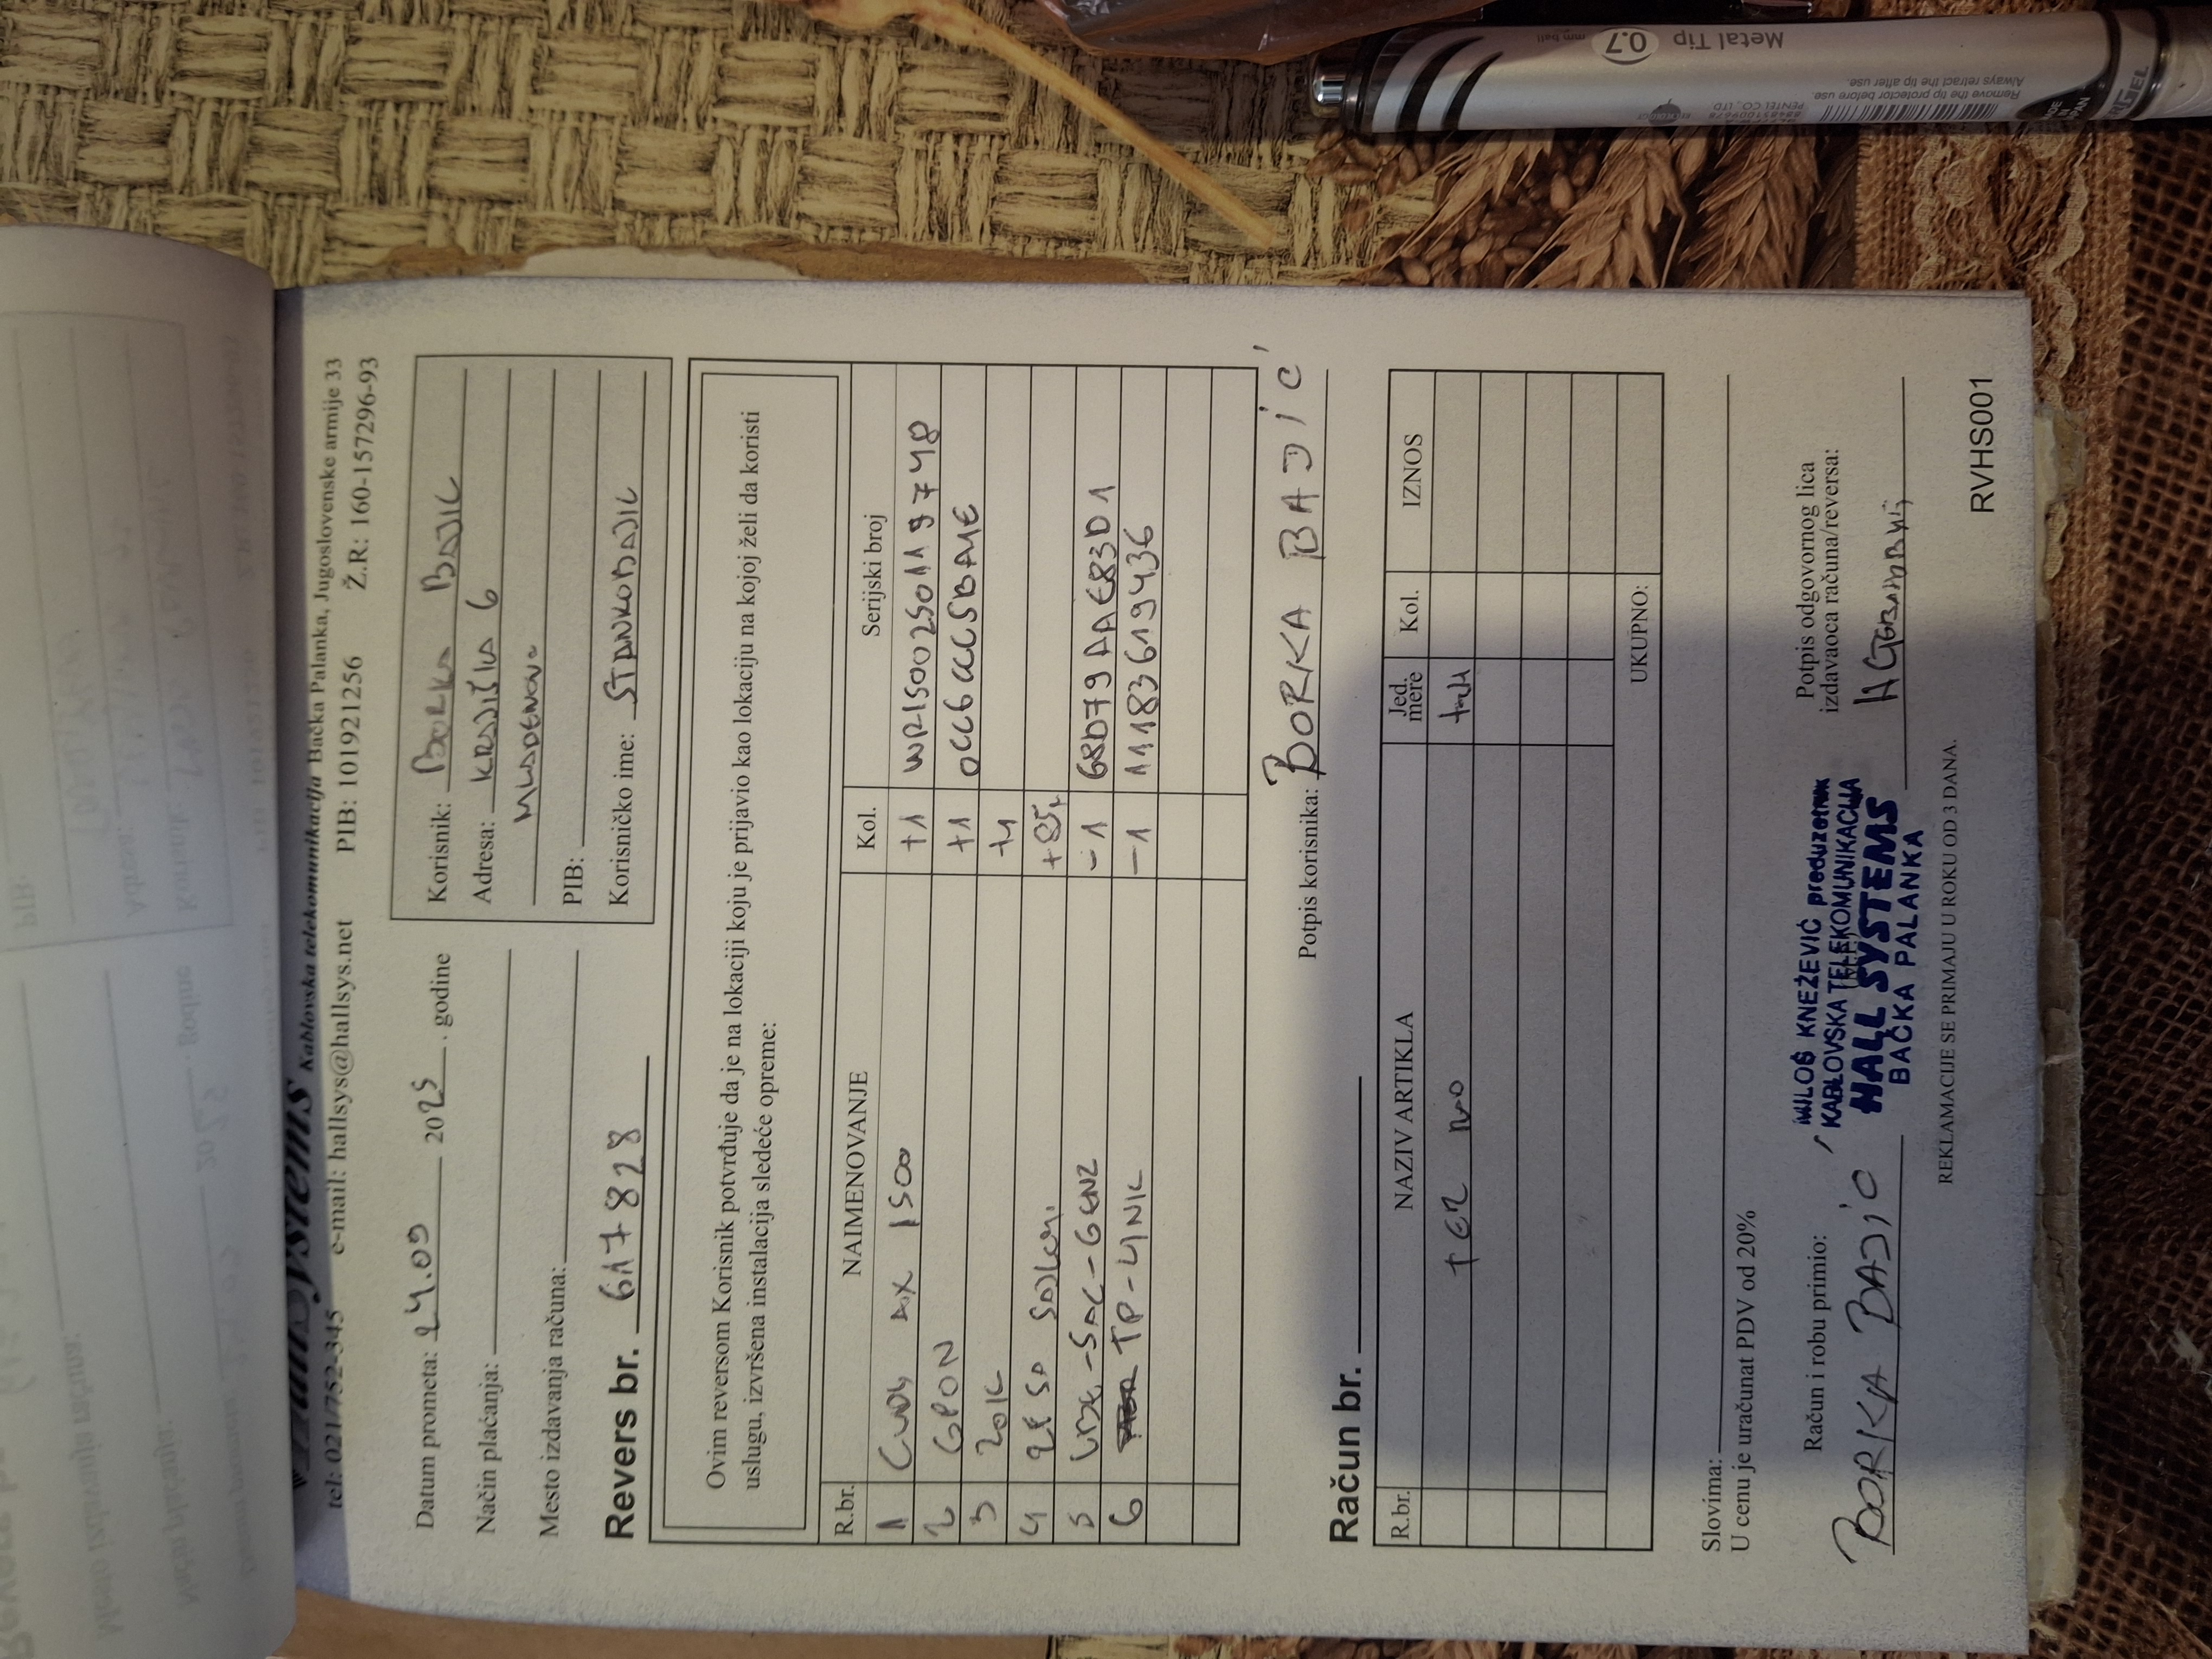 Hall Systems Kablovska telekomunikacija Bačka Palanka, Jugoslovenske armije 33
tel: 021/752-345 e-mail: hallsys@hallsys.net PIB: 101921256 Ž.R: 160-157296-93
Datum prometa: 24.09 2025. godine
Način plaćanja:
Mesto izdavanja računa:
Korisnik: BORKA BAJIC
Adresa: KRAJIŠKA 6
MLADENOVO
PIB:
Korisničko ime: STANKOBAJIC
Revers br. 617828
Ovim reversom Korisnik potvrđuje da je na lokaciji koju je prijavio kao lokaciju na kojoj želi da koristi
uslugu, izvršena instalacija sledeće opreme:
R.br. NAIMENOVANJE Kol. Serijski broj
1 CUDY AX 1500 +1 WR1500250119748
2 GPON +1 0CC6CCC5BA4E
3 +4
4 +85
5 -5AC-GEN2 -1 68D79AAE83D1
6 TP-LINK -1 11183619436
Potpis korisnika: BORKA BAJIĆ
Račun br.
R.br. NAZIV ARTIKLA Jed. mere Kol. IZNOS
UKUPNO:
Slovima:
U cenu je uračunat PDV od 20%
Račun i robu primio:
BORKA BAJIĆ
MILOŠ KNEŽEVIĆ preduzetnik
KABLOVSKA TELEKOMUNIKACIJA
HALL SYSTEMS
BAČKA PALANKA
Potpis odgovornog lica
izdavaoca računa/reversa:
REKLAMACIJE SE PRIMAJU U ROKU OD 3 DANA.
RVHS001
Metal Tip 0.7 mm ball
Remove the tip protector before use.
Always retract the tip after use.
PENTEL CO., LTD.